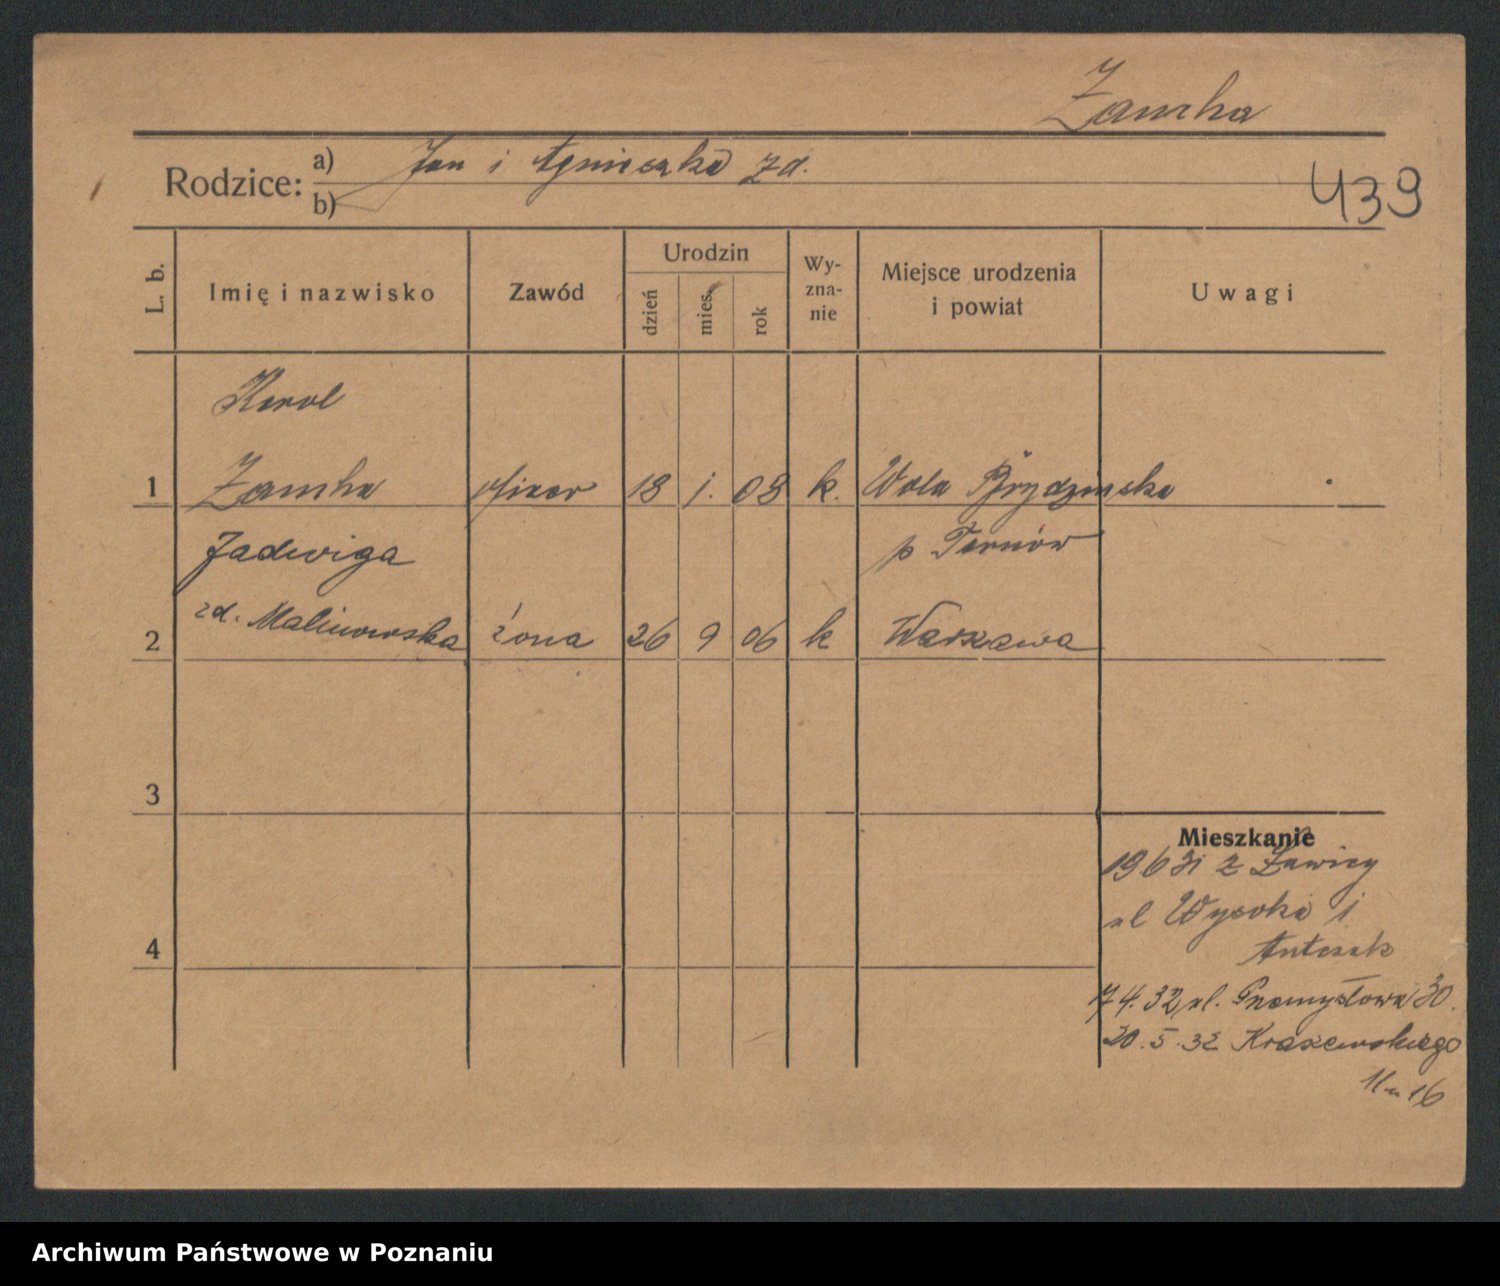 Zamka
Rodzice: a) Jan i Agnieszka zd.
b)
439
L. b.
Imię i nazwisko
Zawód
Urodzin
dzień
mies.
rok
Wy-
zna-
nie
Miejsce urodzenia
i powiat
Uwagi
Karol
1 Zamka oficer 18 1. 08 k. Wola Brydzinska
Jadwiga p Tarnów
2 zd. Malinowska żona 26 9 06 k Warszawa
3
Mieszkanie
19 6 31 z Ławicy
ul Wysoka 1
4
Antczak
74.32 ul. Przemysłowa 30.
20.5.32 Kraszewskiego
11 m 16
Archiwum Państwowe w Poznaniu